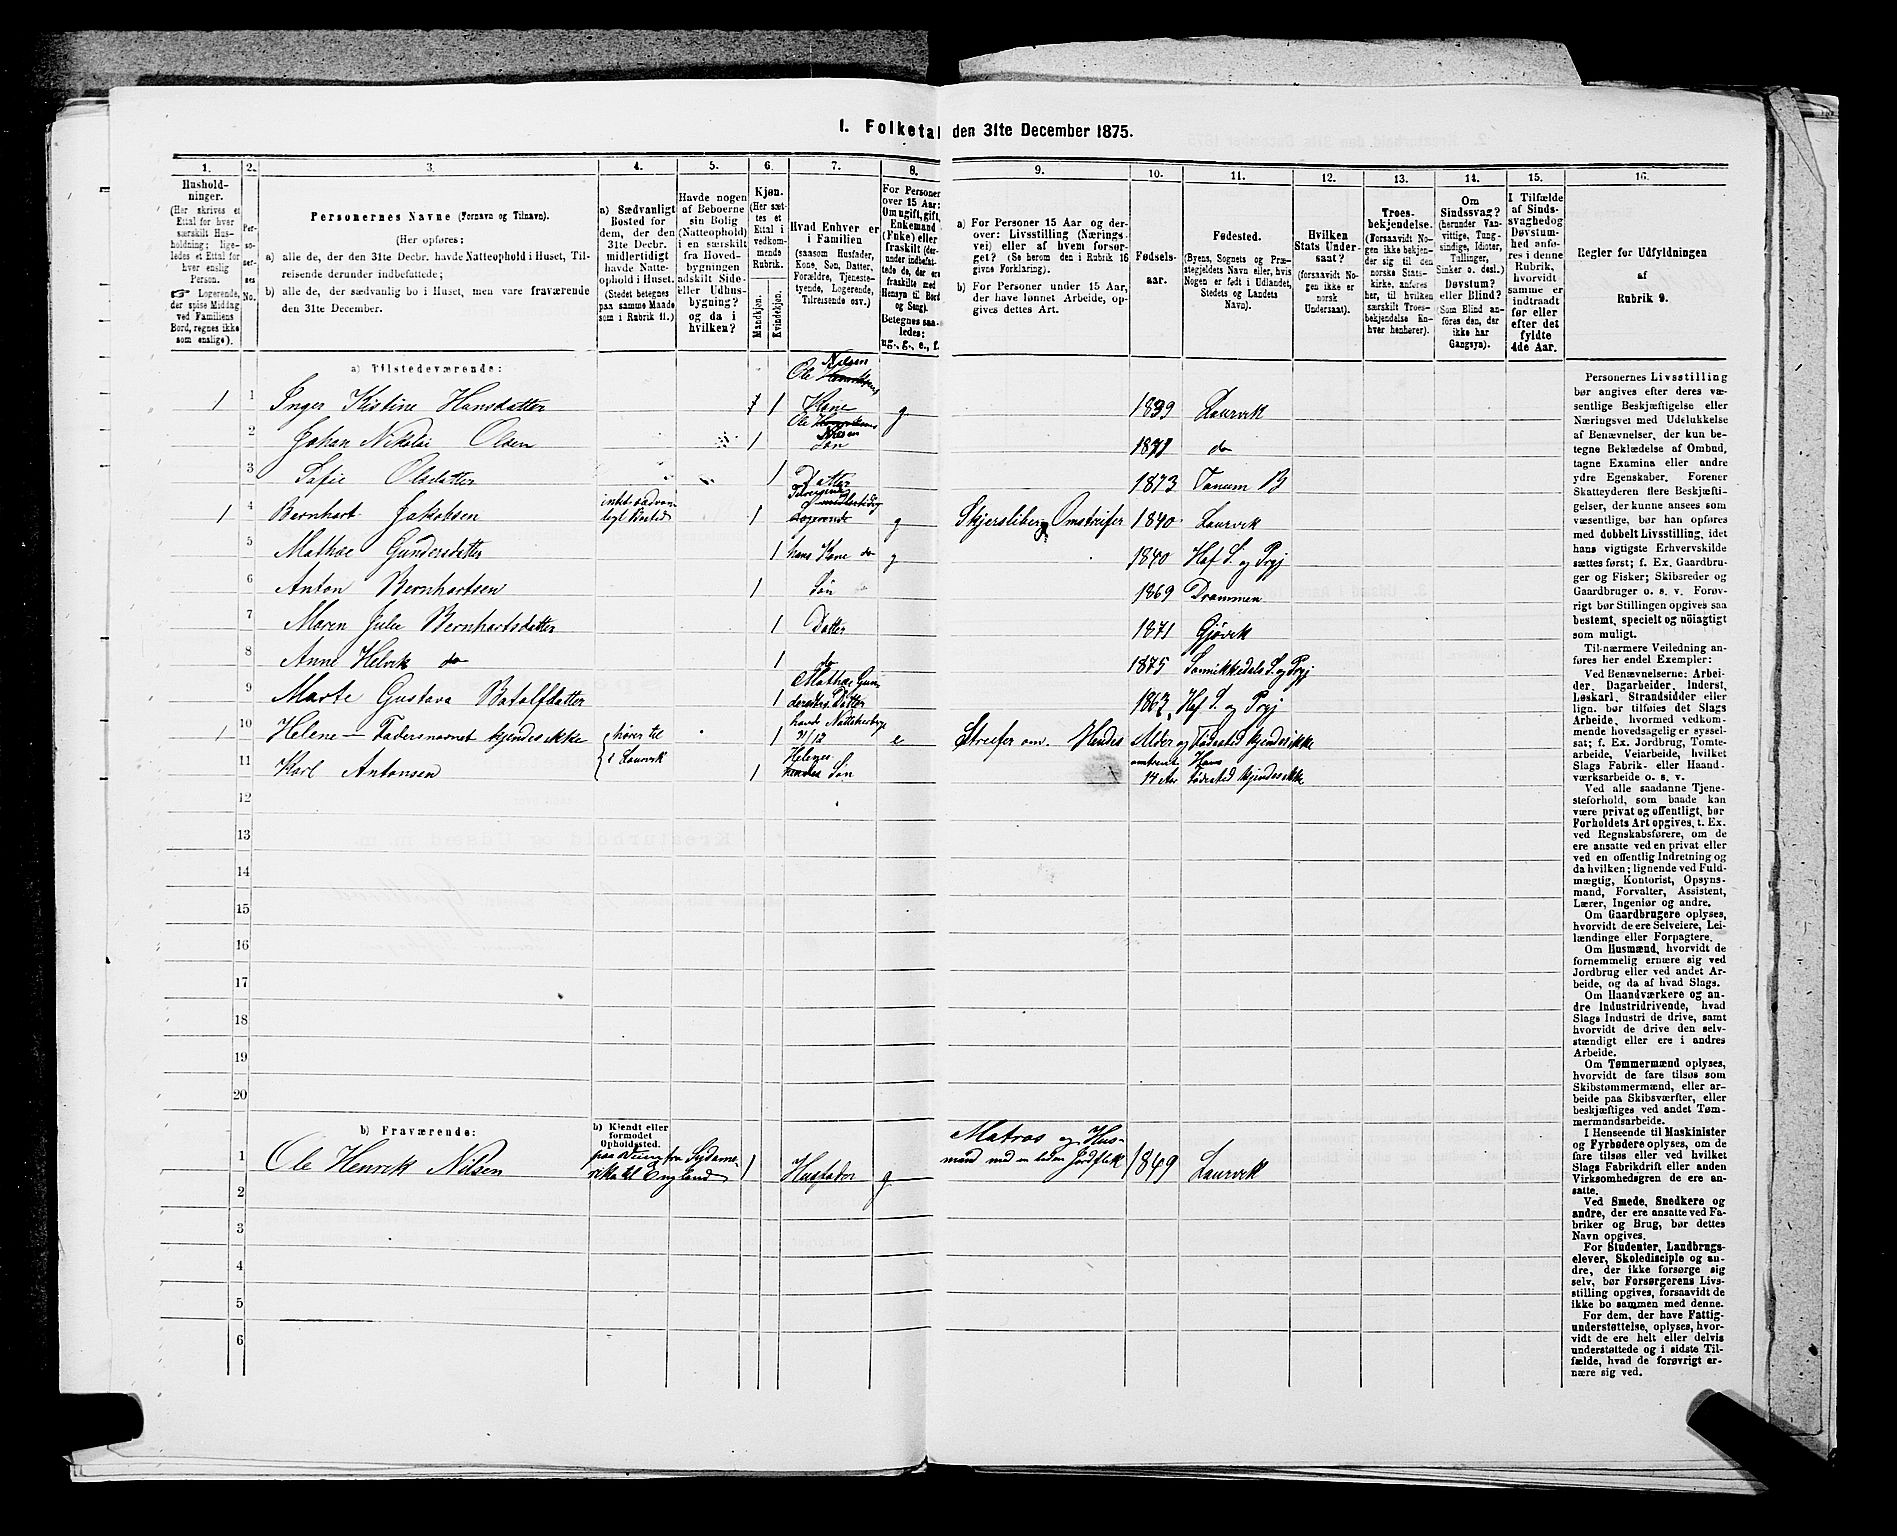 I. Folketal den 31te December 1875.
1. 2. 3. 4. 5. 6. 7. 8. 9. 10. 11. 12. 13. 14. 15. 16.
Hushold-
ninger.
(Her skrives et
Ettal for hver
særskilt Hus-
holdning; lige-
ledes et Ettal for
hver enslig
Person.
☞ Logerende,
der spise Middag
ved Familiens
Bord, regnes ikke
som enslige).
Per-
so-
ner-
ses
No.
Personernes Navne (Fornavn og Tilnavn).
(Her opføres:
a) alle de, der den 31te Decbr. havde Natteophold i Huset, Til-
reisende derunder indbefattede;
b) alle de, der sædvanlig bo i Huset, men vare fraværende
den 31te December.
a) Sædvanligt
Bosted for
dem, der den
31te Decbr.
midlertidigt
havde Natte-
ophold i Huset.
(Stedet betegnes
paa samme Maade
som i Rubrik 11.)
Havde nogen
af Beboerne
sin Bolig
(Natteophold)
i en særskilt
fra Hoved-
bygningen
adskilt Side-
eller Udhus-
bygning?
og da i
hvilken?
Kjøn.
(Her sæt-
tes et
Ettal i
vedkom-
mende
Rubrik.
Mandkjøn.
Kvindekjøn.
Hvad Enhver er
i Familien
(saasom Husfader,
Kone, Søn, Datter,
Forældre, Tjeneste-
tyende, Logerende,
Tilreisende osv.)
For Personer
over 15 Aar:
Om ugift, gift,
Enkemand
(Enke) eller
fraskilt (der-
under indbefat-
tede de, der ere
fraskilte med
Hensyn til Bord
og Seng).
Betegnes saa-
ledes:
ug., g., e., f.
a) For Personer 15 Aar og der-
over: Livsstilling (Nærings-
vei) eller af hvem forsør-
get? (Se herom den i Rubrik 16
givne Forklaring).
b) For Personer under 15 Aar,
der have lønnet Arbeide, op-
gives dettes Art.
Fødsels-
aar.
Fødested.
(Byens, Sognets og Præ-
stegjeldets Navn eller, hvis
Nogen er født i Udlandet,
Stedets og Landets
Navn).
Hvilken
Stats Under-
saat?
(forsaavidt No-
gen ikke er
norsk
Undersaat).
Troes-
bekjendelse.
(Forsaavidt No-
gen ikke bekjen-
der sig til den
norske Stats-
kirke, anføres
her, til hvilken
særskilt Troes-
bekjendelse En-
hver henhører).
Om
Sindssvag?
(herunder Van-
vittige, Tung-
sindige, Idioter,
Tullinger,
Sinker o. desl.)
Døvstum?
eller Blind?
(Som Blind an-
føres den, der
ikke har
Gangsyn).
I Tilfælde
af Sinds-
svaghed og
Døvstum-
hed anfø-
res i denne
Rubrik,
hvorvidt
samme er
indtraadt
før eller
efter det
fyldte
4de Aar.
Regler for Udfyldningen
af
Rubrik 9.
a) Tilstedeværende:
1 1 Inger Kistine Hansdatter 1 Ole Nilsen Kone g 1839 Laurvik
2 Johan Nikolai Olsen 1 Ole Nilsen Søn 1871 do
3 Sofie Olsdatter 1 Datter 1873 Tanum B
1 4 Bernhart Jakobsen intet sædvan-
ligt Bosted 1 g Skjersliber, Omstreifer 1840 Laurvik
5 Mathæ Gundersdatter 1 hans Kone do g 1840 Haf S. og Prgj
6 Anton Bernhartsen 1 Søn 1869 Drammen
7 Maren Julie Bernhartsdatter 1 Datter 1871 Gjøvik
8 Anne Helvik do 1 do 1875 Sannikkedals S. og Prgj
9 Marte Gustava Batolfdatter 1 Mathæ Gun-
dersdtrs Datter 1863 Haf S. og Prgj
1 10 Helene – Fadersnavnet kjendes ikke hører til 1 havde Natteherberge
31/12 e Streifer om. Hendes Alder og Fødested kjendes ikke
11 Karl Antonsen i Laurvik 1 Helenes
Søn omtrent 14 Aar Hans
Fødested kjendes ikke
12
13
14
15
16
17
18
19
20
b) Fraværende:
b) Kjendt eller
formodet
Opholdssted.
1 Ole Henrik Nilsen paa Reise fra Sydame-
rika til England 1 Husfader g Matros og Hus-
mand med en liden Jordflek 1849 Laurvik
2
3
4
5
6
Personernes Livsstilling
bør angives efter deres væ-
sentlige Beskjæftigelse eller
Næringsvei med Udelukkelse
af Benævnelser, der kun be-
tegne Beklædelse af Ombud,
tagne Examina eller andre
ydre Egenskaber. Forener
Skatteyderen flere Beskjæfti-
gelser, der kunne ansees som
væsentlige, bør han opføres
med dobbelt Livsstilling, idet
hans vigtigste Erhvervskilde
sættes først; f. Ex. Gaardbru-
ger og Fisker; Skibsreder og
Gaardbruger o. s. v. Forøv-
rigt bør Stillingen opgives saa
bestemt, specielt og nøiagtigt
som muligt.
Til nærmere Veiledning an-
føres her endel Exempler:
Ved Benævnelserne: Arbei-
der, Dagarbeider, Inderst,
Løskarl, Strandsidder eller
lign. bør tilføies det Slags
Arbeide, hvormed vedkom-
mende hovedsagelig er syssel-
sat; f. Ex. Jordbrug, Tomte-
arbeide, Veiarbeide, hvilket
Slags Fabrik- eller Haand-
værksarbeide o. s. v.
Ved alle saadanne Tjene-
steforhold, som baade kan
være privat og offentligt, bør
Forholdets Art opgives, t. Ex.
ved Regnskabsførere, om de
ere ansatte ved en privat eller
ved en offentlig Indretning og
da hvilken; lignende ved Fuld-
mægtig, Kontorist, Opsyns-
mand, Forvalter, Assistent,
Lærer, Ingeniør og andre.
Om Gaardbrugere oplyses,
hvorvidt de ere Selveiere, Lei-
lændinge eller Forpagtere.
Om Husmænd, hvorvidt de
fornemmelig ernære sig ved
Jordbrug eller ved andet Ar-
beide, og da af hvad Slags.
Om Haandværkere og an-
dre Industridrivende, hvad
Slags Industri de drive, samt
hvorvidt de drive den selv-
stændigt eller ere i andres
Arbeide.
Om Tømmermænd oplyses,
hvorvidt de fare tilsøs som
Skibstømmermænd, eller ar-
beide paa Skibsværfter, eller
beskjæftiges ved andet Tøm-
mermandsarbeide.
I Henseende til Maskinister
og Fyrbødere oplyses, om de
fare tilsøs eller ved hvilket
Slags Fabrikdrift eller anden
Virksomhedsgren de ere an-
satte.
Ved Smede, Snedkere og
andre, der ere ansatte ved Fa-
briker og Brug, bør dettes
Navn opgives.
For Studenter, Landbrugs-
elever, Skoledisciple og an-
dre, der ikke forsørge sig
selv, bør Forsørgerens Livs-
stilling opgives, forsaavidt de
ikke bo sammen med denne.
For dem, der have Fattig-
understøttelse, oplyses, hvor-
vidt de ere helt eller delvis
understøttede og i sidste Til-
fælde, hvad de forøvrigt er-
nære sig ved.